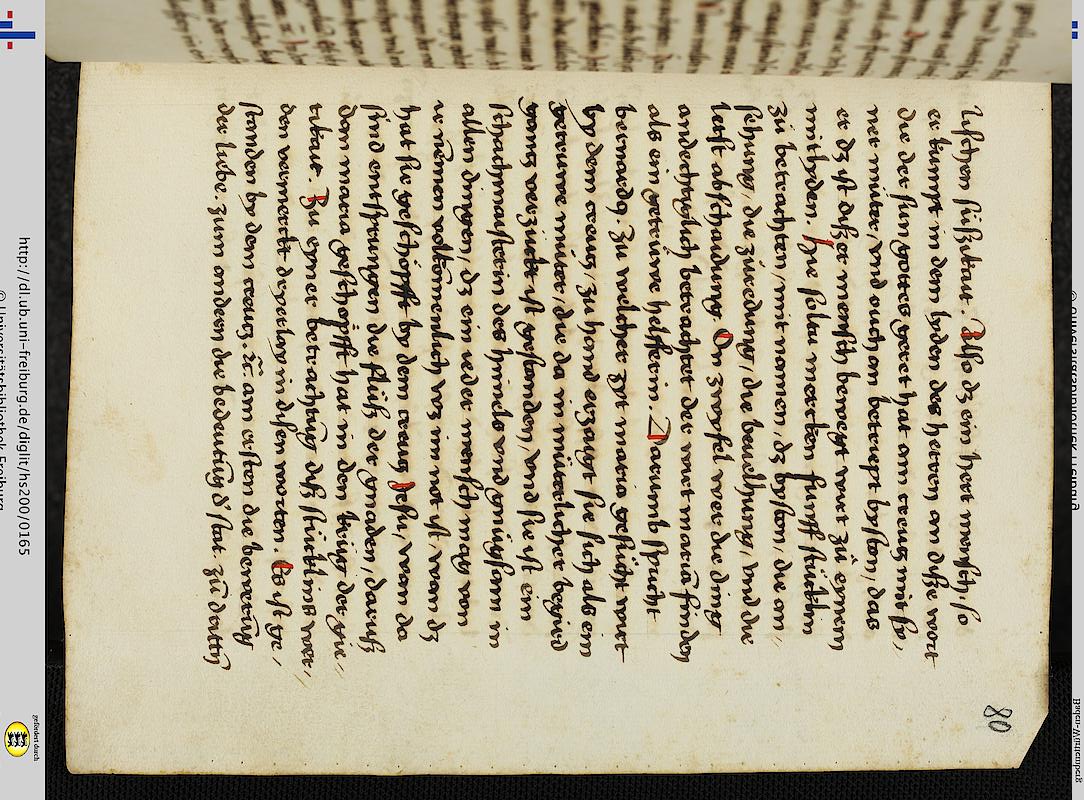 80
ischen süßikait. Also dz ein hert mensch so
er kumpt in dem lyden des herren an diße wort
die der sun gottes geret hat am creutz mit sy,,
ner muter, und ouch am betrüpt byston, das
er dz ist dißer mensch bewegt wirt zů eynem
mitlyden. Hie solau mercken funff stücklin
zů betrachten, mit namen, dz byston, die an,,
sehung, die zůredung, die beuelhung, und die
letst abschaidung. On zwyfel wer die ding
andechtiglich betrachtet der wirt maria finden
als ein getruwe helfferin. Darumb spricht
bernardus. Zu welcher zyt maria gesücht wirt
by dem creutz, zu hand erzaigt sie sich als ein
getruwe můter, die da in můterlicher begird
gantz verzuckt ist gestanden, und sie ist ein
schachmaisterin des himels und gnůgsam in
allen dingen, dz ein ieder mensch mag von
ir nemen volkomenlich wz im not ist, wann dz
hat sie geschöpfft by dem creutz Jhesu, von da
sind entsprungen die fluß der gnaden, daruß
dan maria geschöpfft hat in den krüg der gü,,
tikait. Zu eyner betrachtung diß stücklins wer,,
den vermerckt dry erlay in dißen worten. Es ist ge,,
standen by dem creutz, etc. am ersten die bewerung
der liebe. zum andern die bedeutung der stat. zů dritten
http://dl.ub.uni-freiburg.de/diglit/hs200/0165
© Universitätsbibliothek Freiburg
gefördert durch